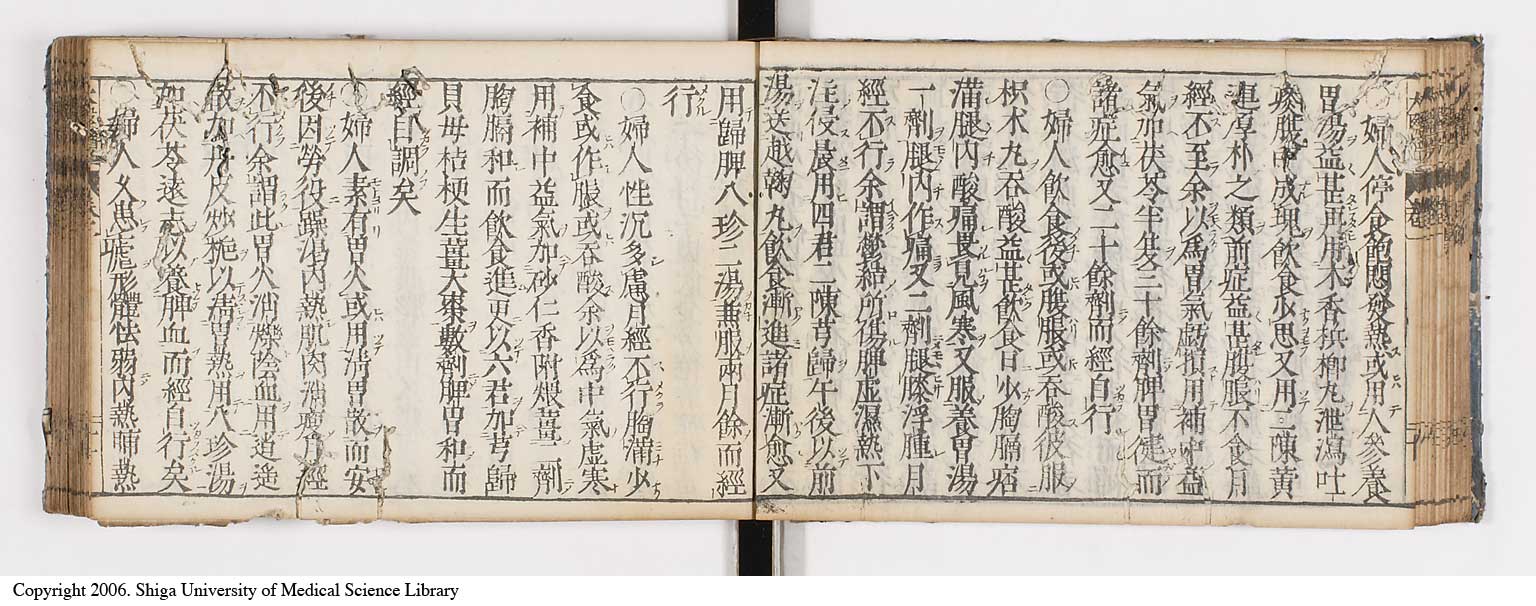 ○婦人停食飽悶發熱或用人參養
胃湯益甚再用木香檳榔丸泄瀉吐
痰腹中成塊飲食少思又用二陳黃
連厚朴之類前症益甚腹脹不食月
經不至余以爲胃氣虧損用補中益
氣加茯苓半夏三十餘劑脾胃健而
諸症愈又二十餘劑而經自行
○婦人飲食後或腹脹或吞酸彼服
枳朮丸吞酸益甚飲食日少胸膈痞
滿腿內酸痛畏見風寒又服養胃湯
一劑腿內作痛又二劑腿膝浮腫月
經不行余謂鬱結所傷脾虛濕熱下
注侵晨用四君二陳芎歸午後以前
湯送越鞠丸飲食漸進諸症漸愈又
用歸脾八珍二湯兼服兩月餘而經
行
○婦人性沉多慮月經不行胸滿少
食或作脹或吞酸余以爲中氣虛寒
用補中益氣加砂仁香附煨薑二劑
胸膈和而飲食進更以六君加芎歸
貝母桔梗生薑大棗數劑脾胃和而
經自調矣
○婦人素有胃火或用清胃散而安
後因勞役躁渴內熱肌肉消瘦月經
不行余謂此胃火消爍陰血用逍遙
散加丹皮炒梔以清胃熱用八珍湯
加茯苓遠志以養脾血而經自行矣
○婦人久患瘧形體怯弱內熱晡熱
Copyright 2006. Shiga University of Medical Science Library